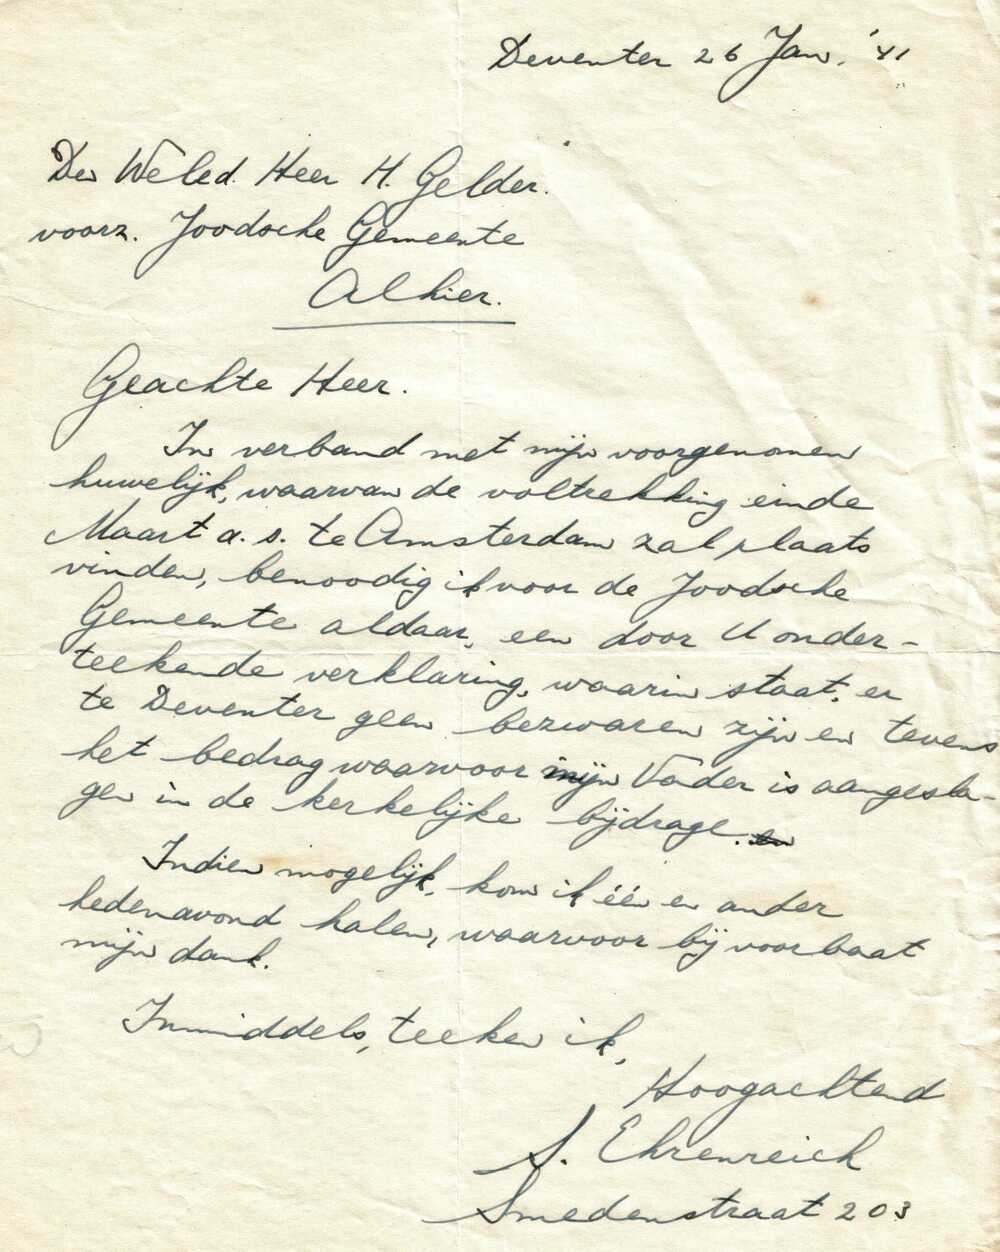 Deventer 26 Jan. '41
Den Weled. Heer H. Gelder.
voorz. Joodsche Gemeente
Alhier.
Geachte Heer.
In verband met mijn voorgenomen
huwelijk, waarvan de voltrekking einde
Maart a. s. te Amsterdam zal plaats
vinden, benoodig ik voor de Joodsche
Gemeente aldaar, een door U onder-
teekende verklaring, waarin staat, er
te Deventer geen bezwaren zijn en tevens
het bedrag waarvoor mijn Vader is aangesla-
gen in de kerkelijke bijdrage.
Indien mogelijk, kom ik één en ander
hedenavond halen, waarvoor bij voorbaat
mijn dank.
Inmiddels, teeken ik,
Hoogachtend
S. Ehrenreich
Smedenstraat 203